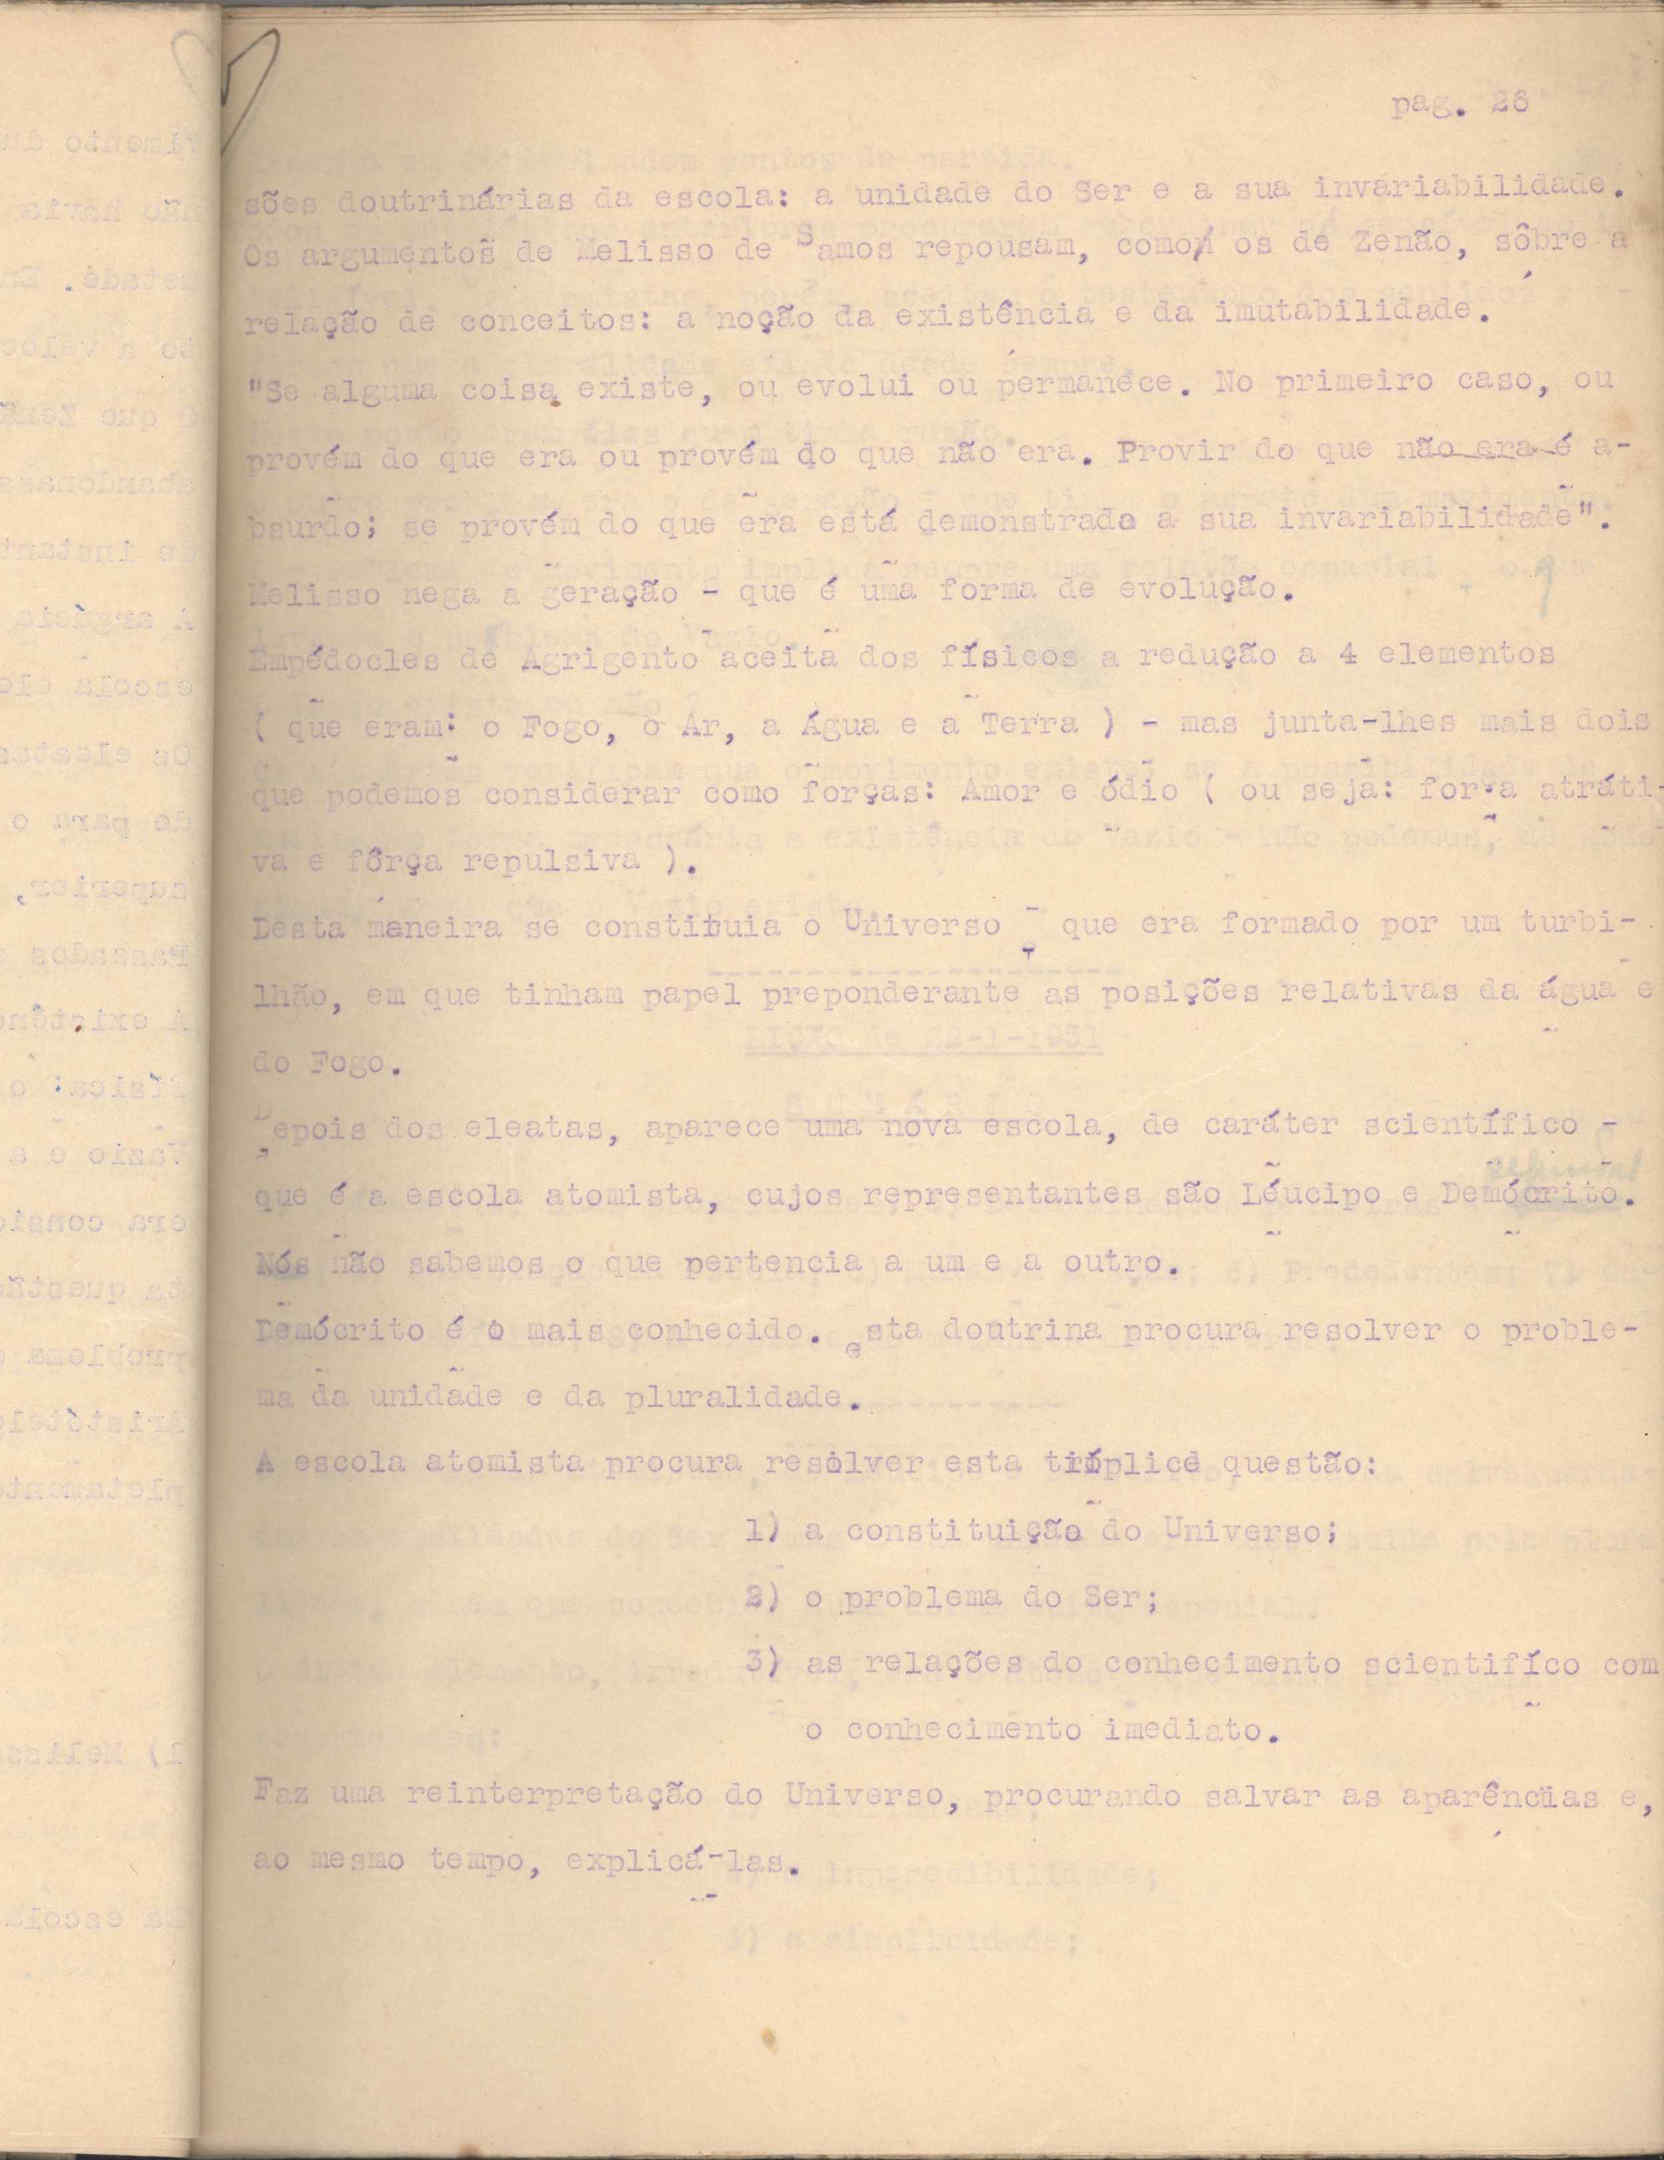 pag. 26
sões doutrinárias da escola: a unidade do Ser e a sua invariabilidade.
Os argumentos de Melisso de Samos repousam, como os de Zenão, sôbre a
relação de conceitos: a noção da existência e da imutabilidade.
"Se alguma coisa existe, ou evolui ou permanece. No primeiro caso, ou
provém do que era ou provém do que não era. Provir do que não era é a-
bsurdo; se provém do que era está demonstrada a sua invariabilidade".
Melisso nega a geração - que é uma forma de evolução.
Empédocles de Agrigento aceita dos físicos a redução a 4 elementos
( que eram: o Fogo, o Ar, a Água e a Terra ) - mas junta-lhes mais dois
que podemos considerar como forças: Amor e ódio ( ou seja: força atráti-
va e fôrça repulsiva ).
Desta maneira se constituia o Universo - que era formado por um turbi-
lhão, em que tinham papel preponderante as posições relativas da água e
do Fogo.
Depois dos eleatas, aparece uma nova escola, de caráter scientífico -
que é a escola atomista, cujos representantes são Léucipo e Demócrito.
Nós não sabemos o que pertencia a um e a outro.
Demócrito é o mais conhecido. esta doutrina procura resolver o proble-
ma da unidade e da pluralidade.
A escola atomista procura resolver esta tríplice questão:
1) a constituição do Universo;
2) o problema do Ser;
3) as relações do conhecimento scientifíco com
o conhecimento imediato.
Faz uma reinterpretação do Universo, procurando salvar as aparências e,
ao mesmo tempo, explicá-las.